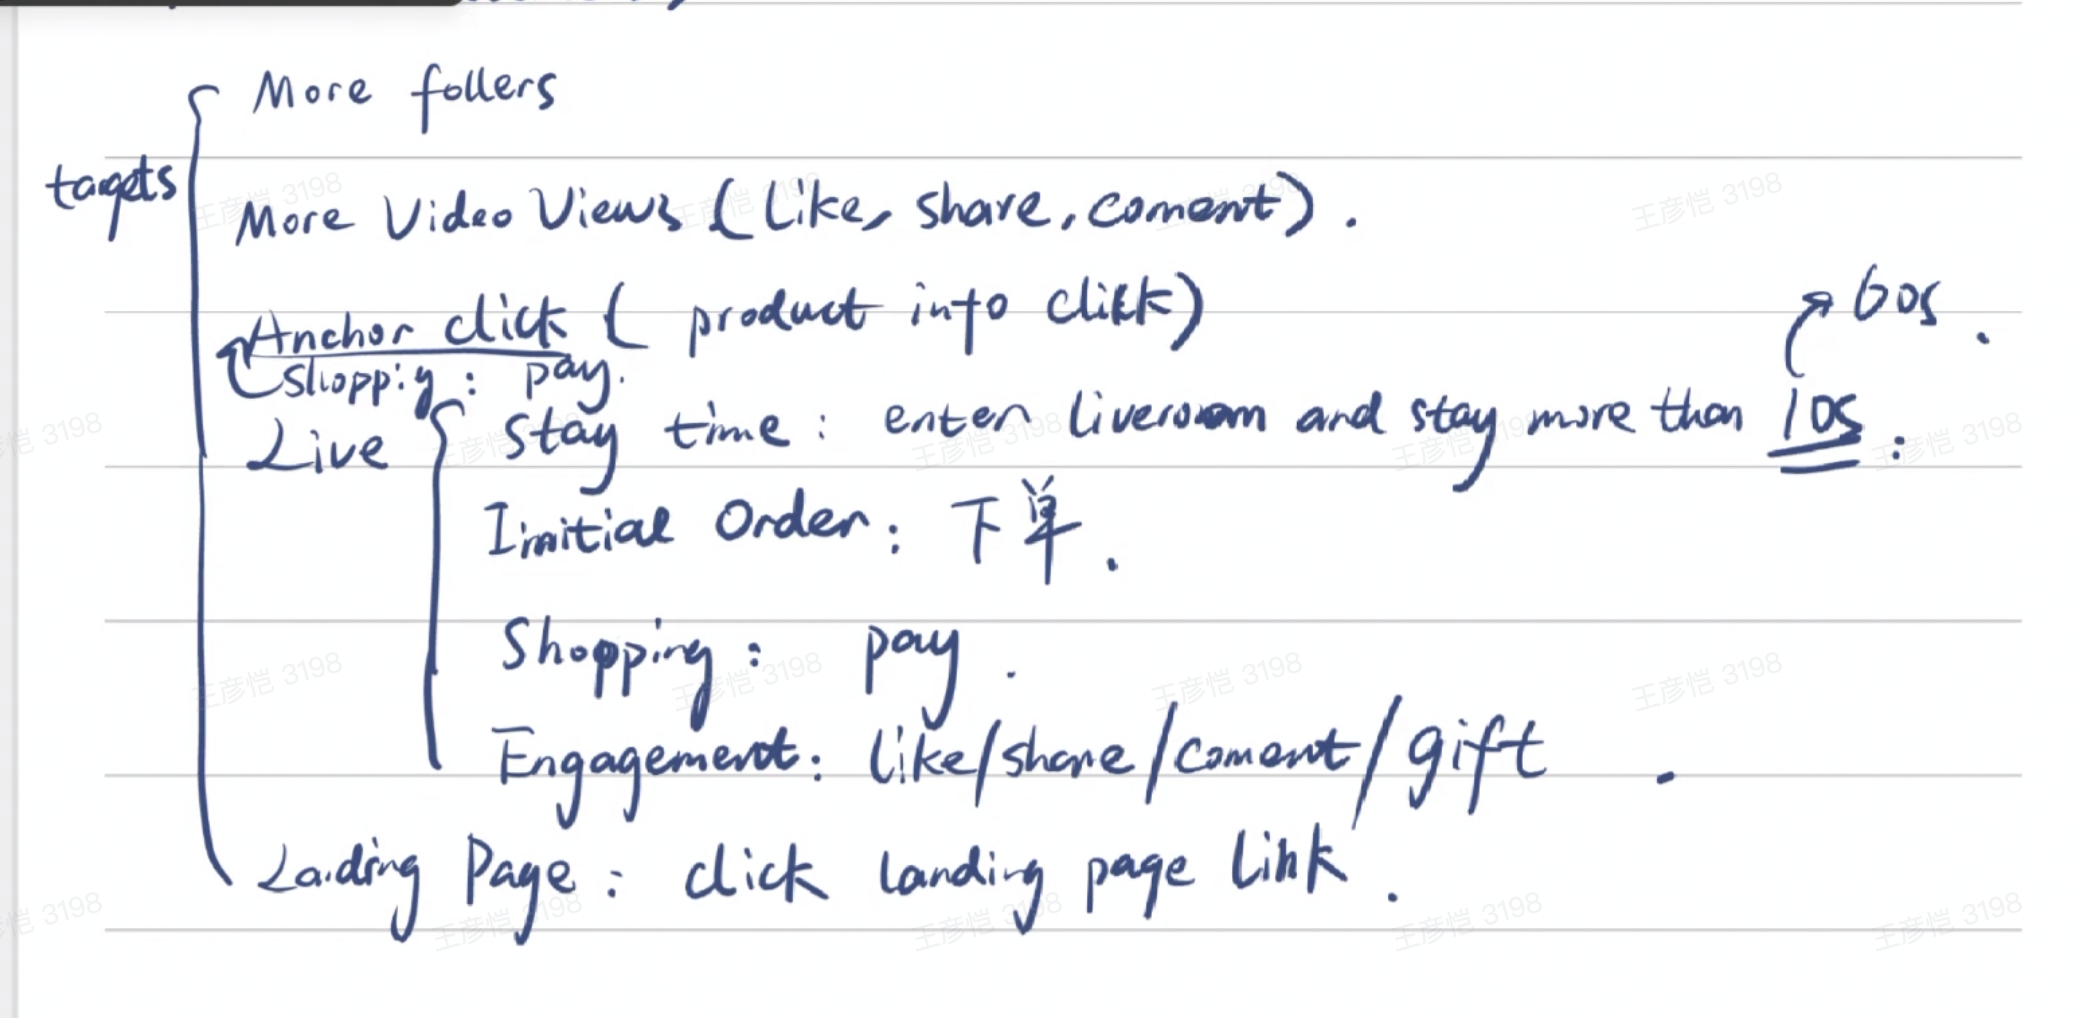 targets
More follers
More Video Views (Like, share, coment).
Anchor click ( product info click)
60s.
shoppig: pay.
Live
Stay time: enter liveroom and stay more than 10s.
Initial Order: 下单.
Shopping: pay.
Engagement: like/share/coment/gift.
Landing Page: click landing page link.
王彦恺 3198